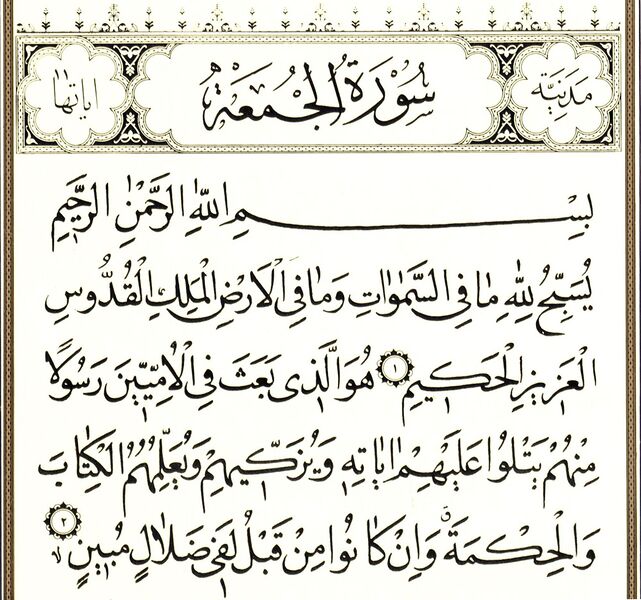 مَدَنِيَّة
سُورَةُ الْجُمُعَةِ
اياتها ١١
بِسْمِ اللّٰهِ الرَّحْمٰنِ الرَّحِيمِ
يُسَبِّحُ لِلّٰهِ مَا فِي السَّمٰوَاتِ وَمَا فِي الْاَرْضِ الْمَلِكِ الْقُدُّوسِ
الْعَزِيزِ الْحَكِيمِ ١ هُوَ الَّذِى بَعَثَ فِي الْاُمِّيّ۪نَ رَسُولًا
مِنْهُمْ يَتْلُوا عَلَيْهِمْ اٰيَاتِهِ وَيُزَكِّيهِمْ وَيُعَلِّمُهُمُ الْكِتَابَ
وَالْحِكْمَةَ وَاِنْ كَانُوا مِنْ قَبْلُ لَفِي ضَلَالٍ مُبِينٍ ٢